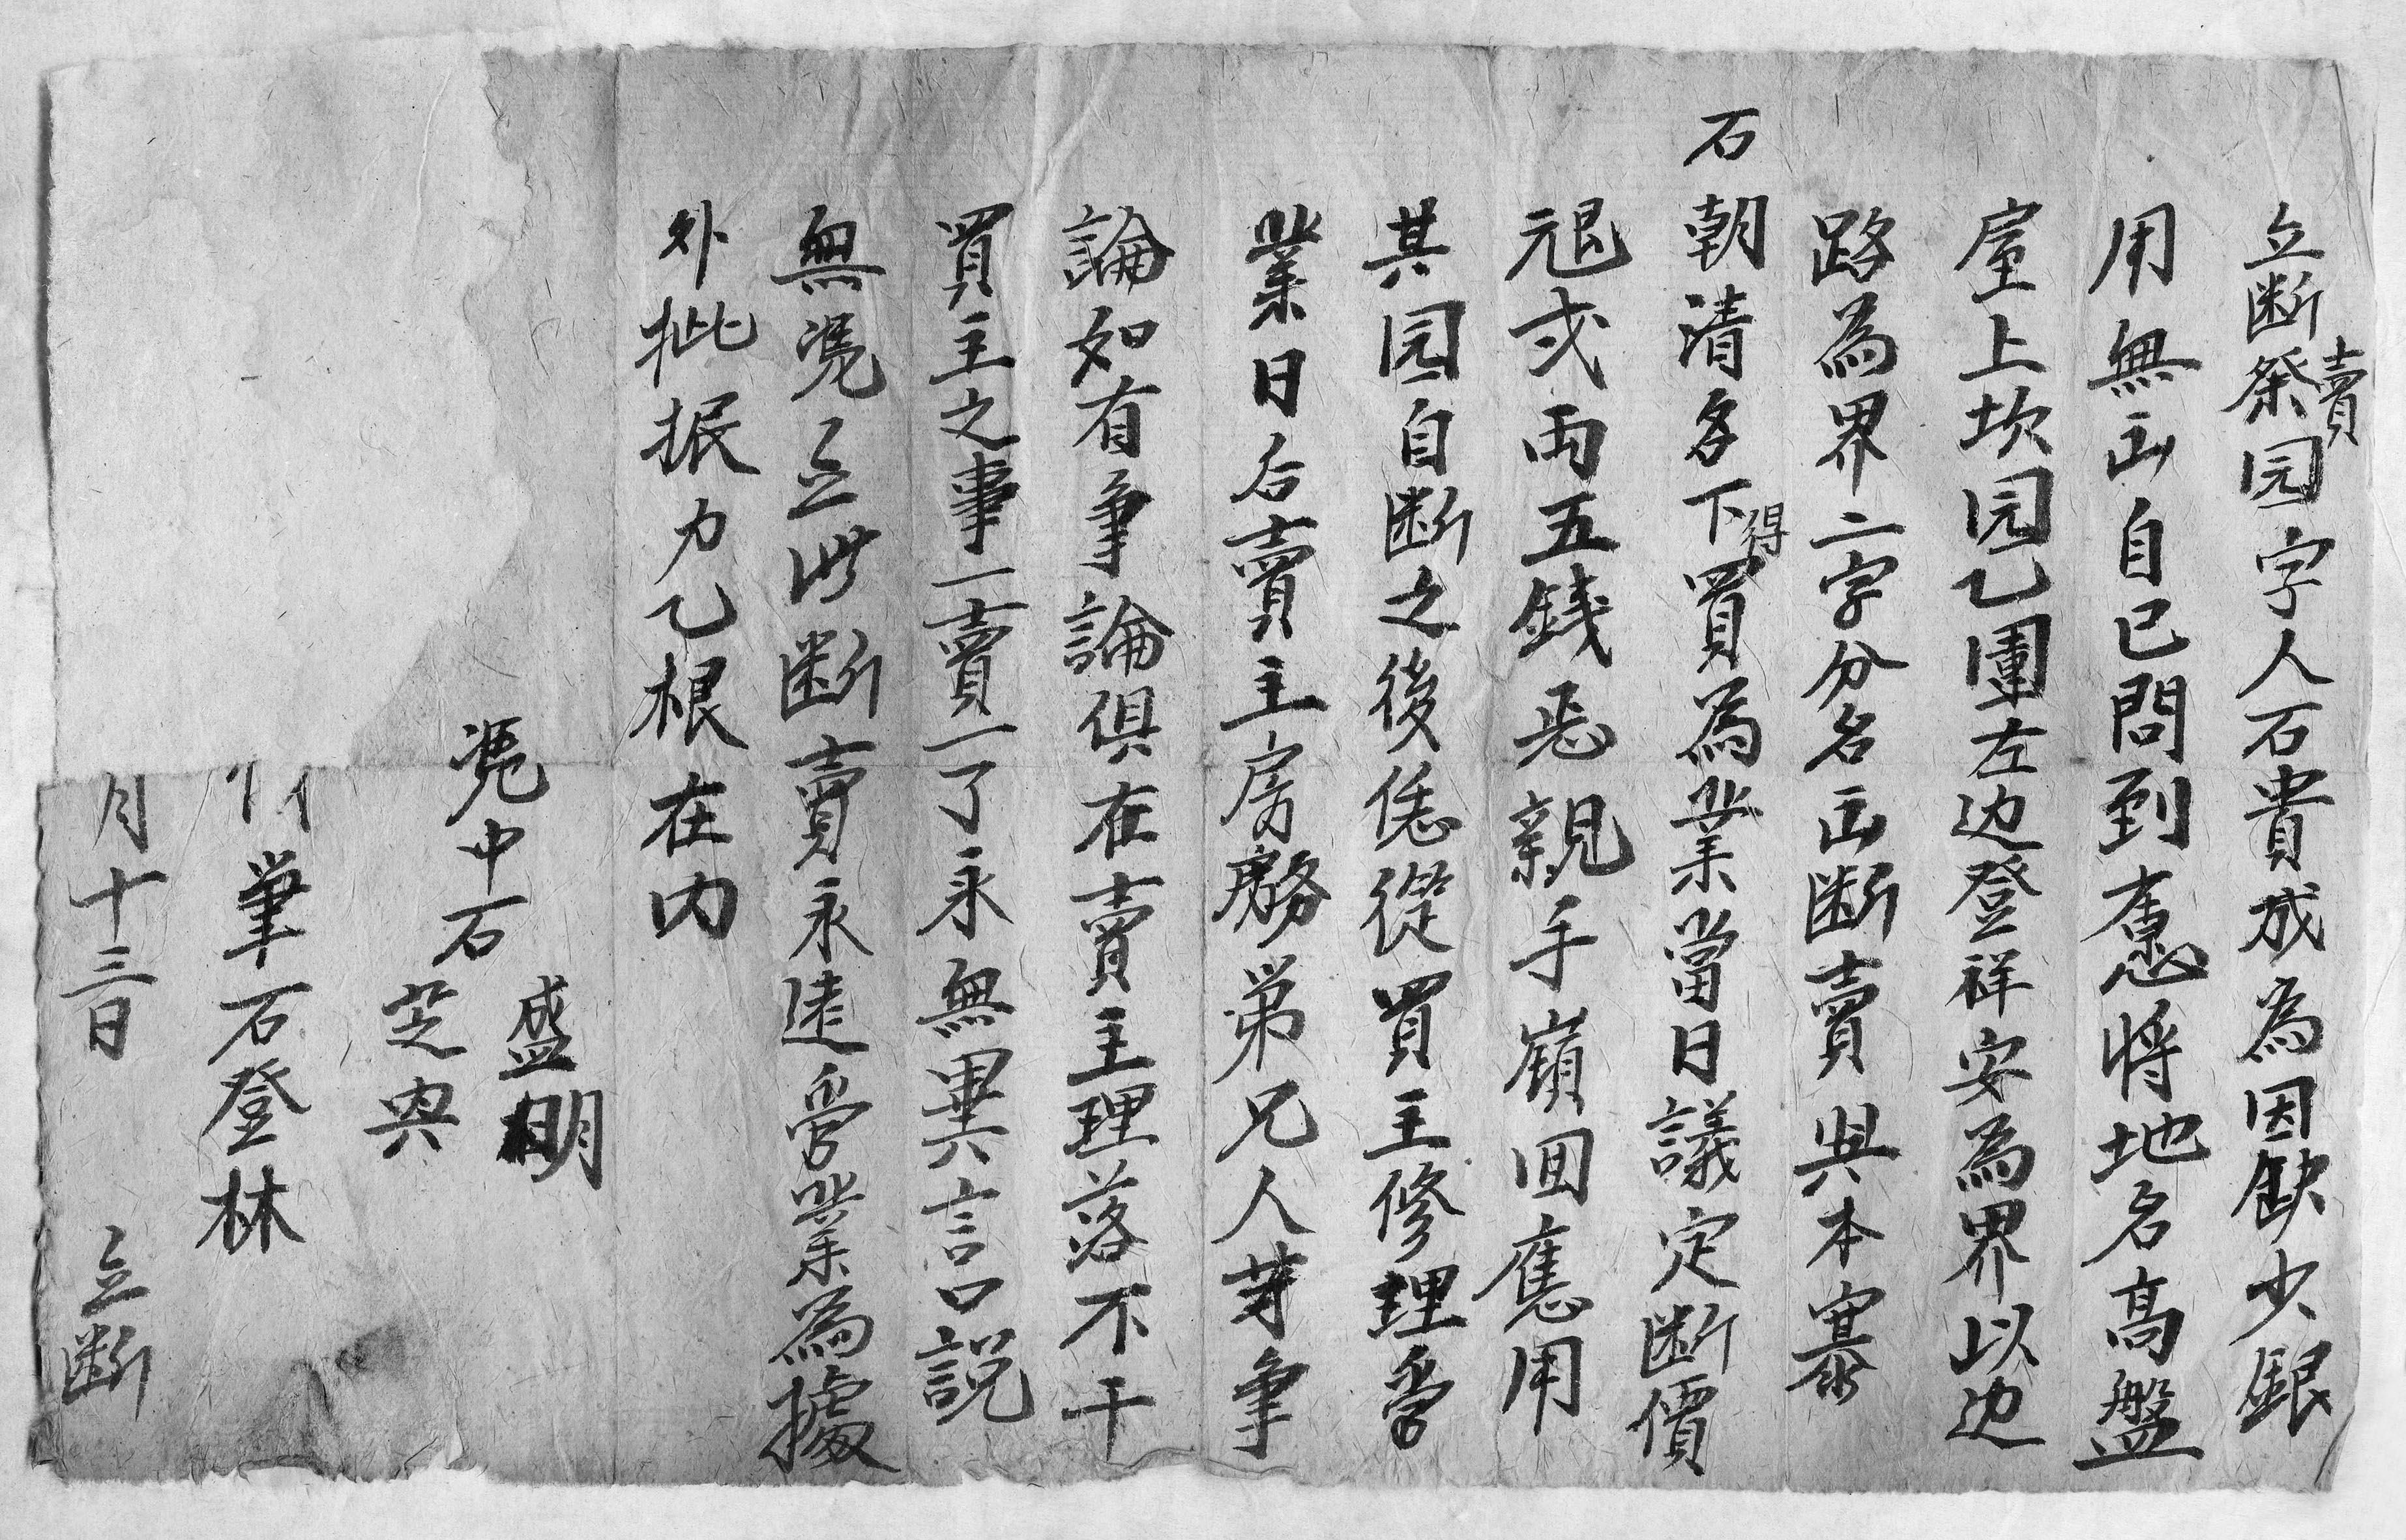 立断賣祭园字人石貴成為因缺少銀
用無出自己問到愿將地名高盤
屋上坎园乙團左边登祥安為界以边
路為界二字分名出断賣與本寨
石朝清名下得買為業當日議定断價
元艮弍両五錢㐵親手嶺回應用
其园自断之後恁從買主修理受
業日后賣主房務弟兄人等爭
論如有爭論俱在賣主理落不干
買主之事一賣一了永無異言口說
無憑立此断賣永遠受業為據
外批振力乙根在内
憑中石盛明
芝與
筆石登林
月十三日 立断